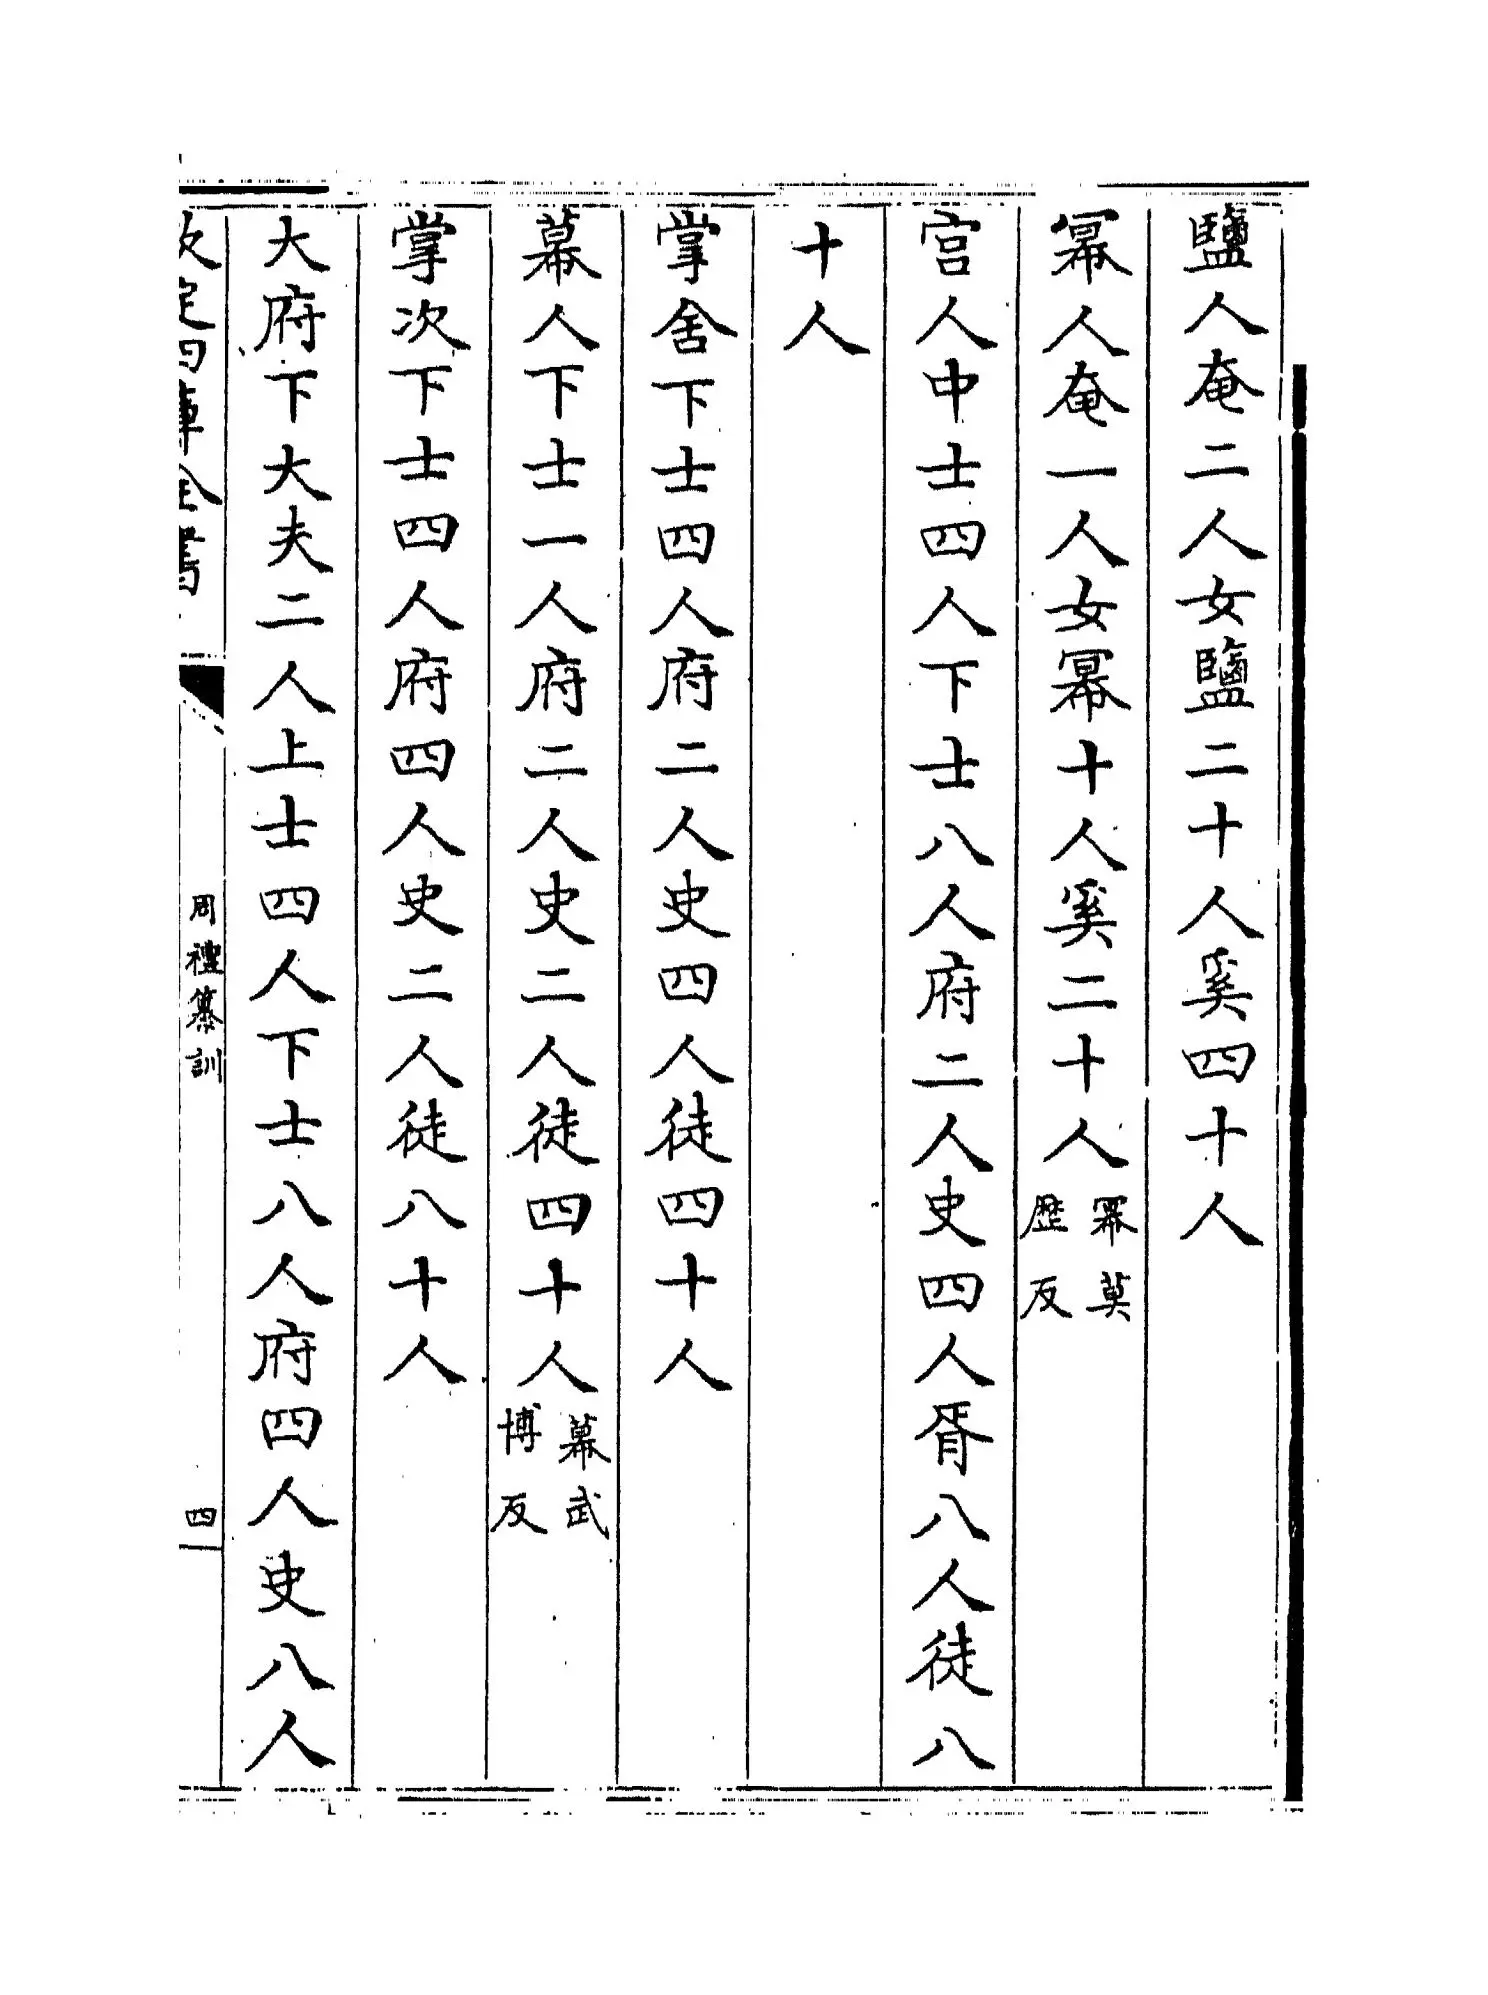 鹽人奄二人女鹽二十人奚四十人
冪人奄一人女冪十人奚二十人冪莫歷反
宫人中士四人下士八人府二人史四人胥八人徒八
十人
掌舍下士四人府二人史四人徒四十人
幕人下士一人府二人史二人徒四十人幕武博反
掌次下士四人府四人史二人徒八十人
大府下大夫二人上士四人下士八人府四人史八人
欽定四庫全書
周禮纂訓
四